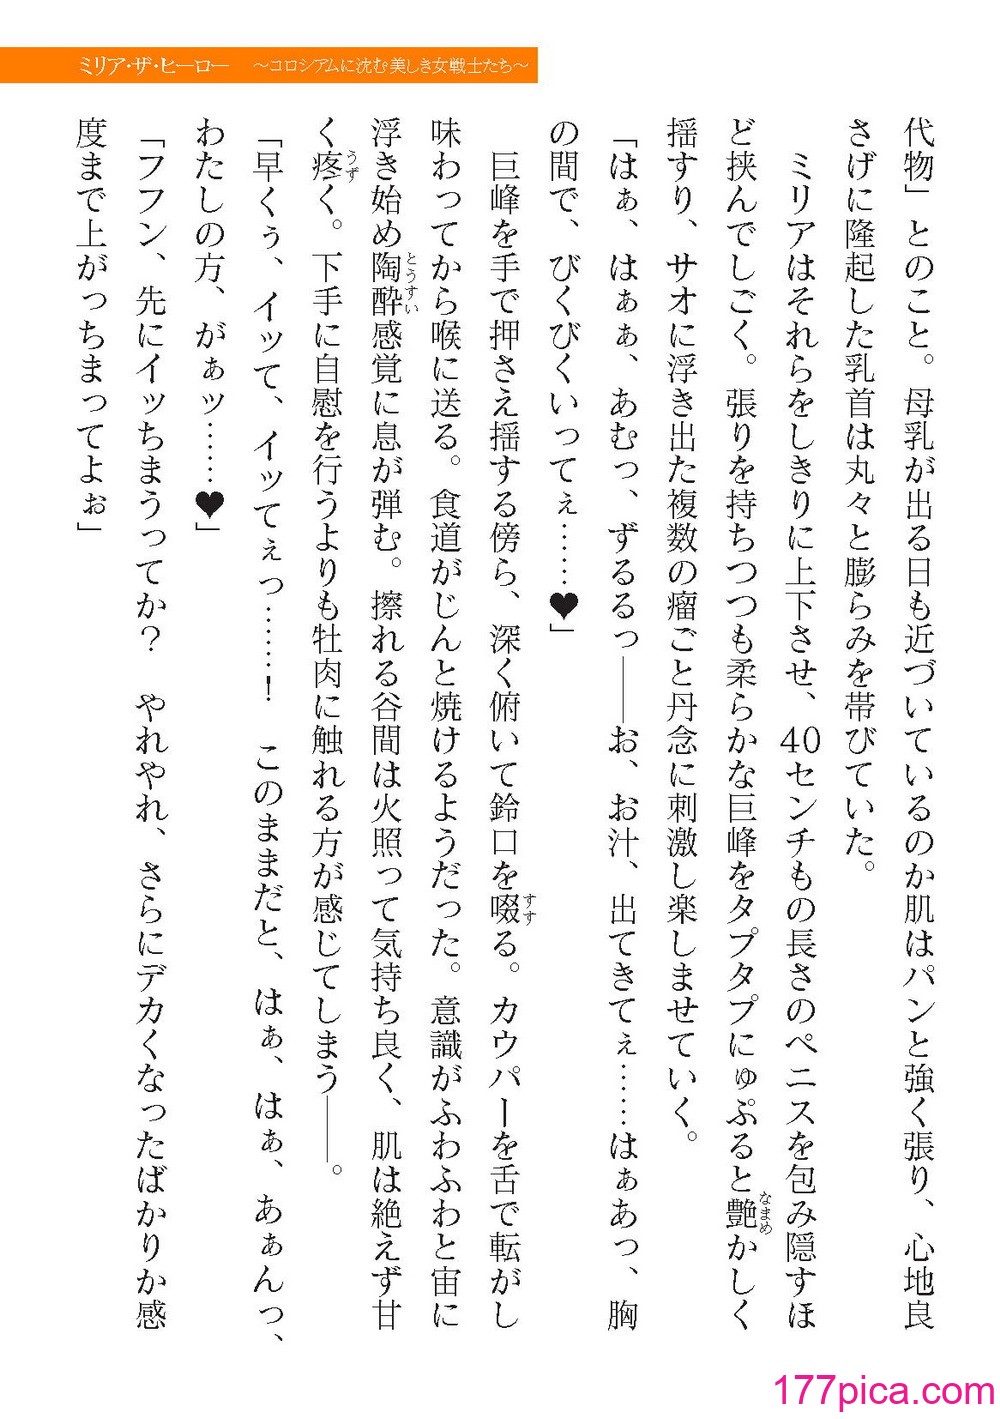 ミリア・ザ・ヒーロー　～コロシアムに沈む美しき女戦士たち～
代物」とのこと。母乳が出る日も近づいているのか肌はパンと強く張り、心地良
さげに隆起した乳首は丸々と膨らみを帯びていた。
　ミリアはそれらをしきりに上下させ、40センチもの長さのペニスを包み隠すほ
ど挟んでしごく。張りを持ちつつも柔らかな巨峰をタプタプにゅぷると艶かしく
なまめ
揺すり、サオに浮き出た複数の瘤ごと丹念に刺激し楽しませていく。
「はぁ、はぁぁ、あむっ、ずるるっ――お、お汁、出てきてぇ……はぁあっ、胸
の間で、びくびくいってぇ……♥」
　巨峰を手で押さえ揺する傍ら、深く俯いて鈴口を啜る。カウパーを舌で転がし
すす
味わってから喉に送る。食道がじんと焼けるようだった。意識がふわふわと宙に
浮き始め陶酔感覚に息が弾む。擦れる谷間は火照って気持ち良く、肌は絶えず甘
とうすい
く疼く。下手に自慰を行うよりも牡肉に触れる方が感じてしまう――。
うず
「早くぅ、イッて、イッてぇっ……！　このままだと、はぁ、はぁ、あぁんっ、
わたしの方、がぁッ……♥」
「フフン、先にイッちまうってか？　やれやれ、さらにデカくなったばかりか感
度まで上がっちまってよぉ」
177pica.com